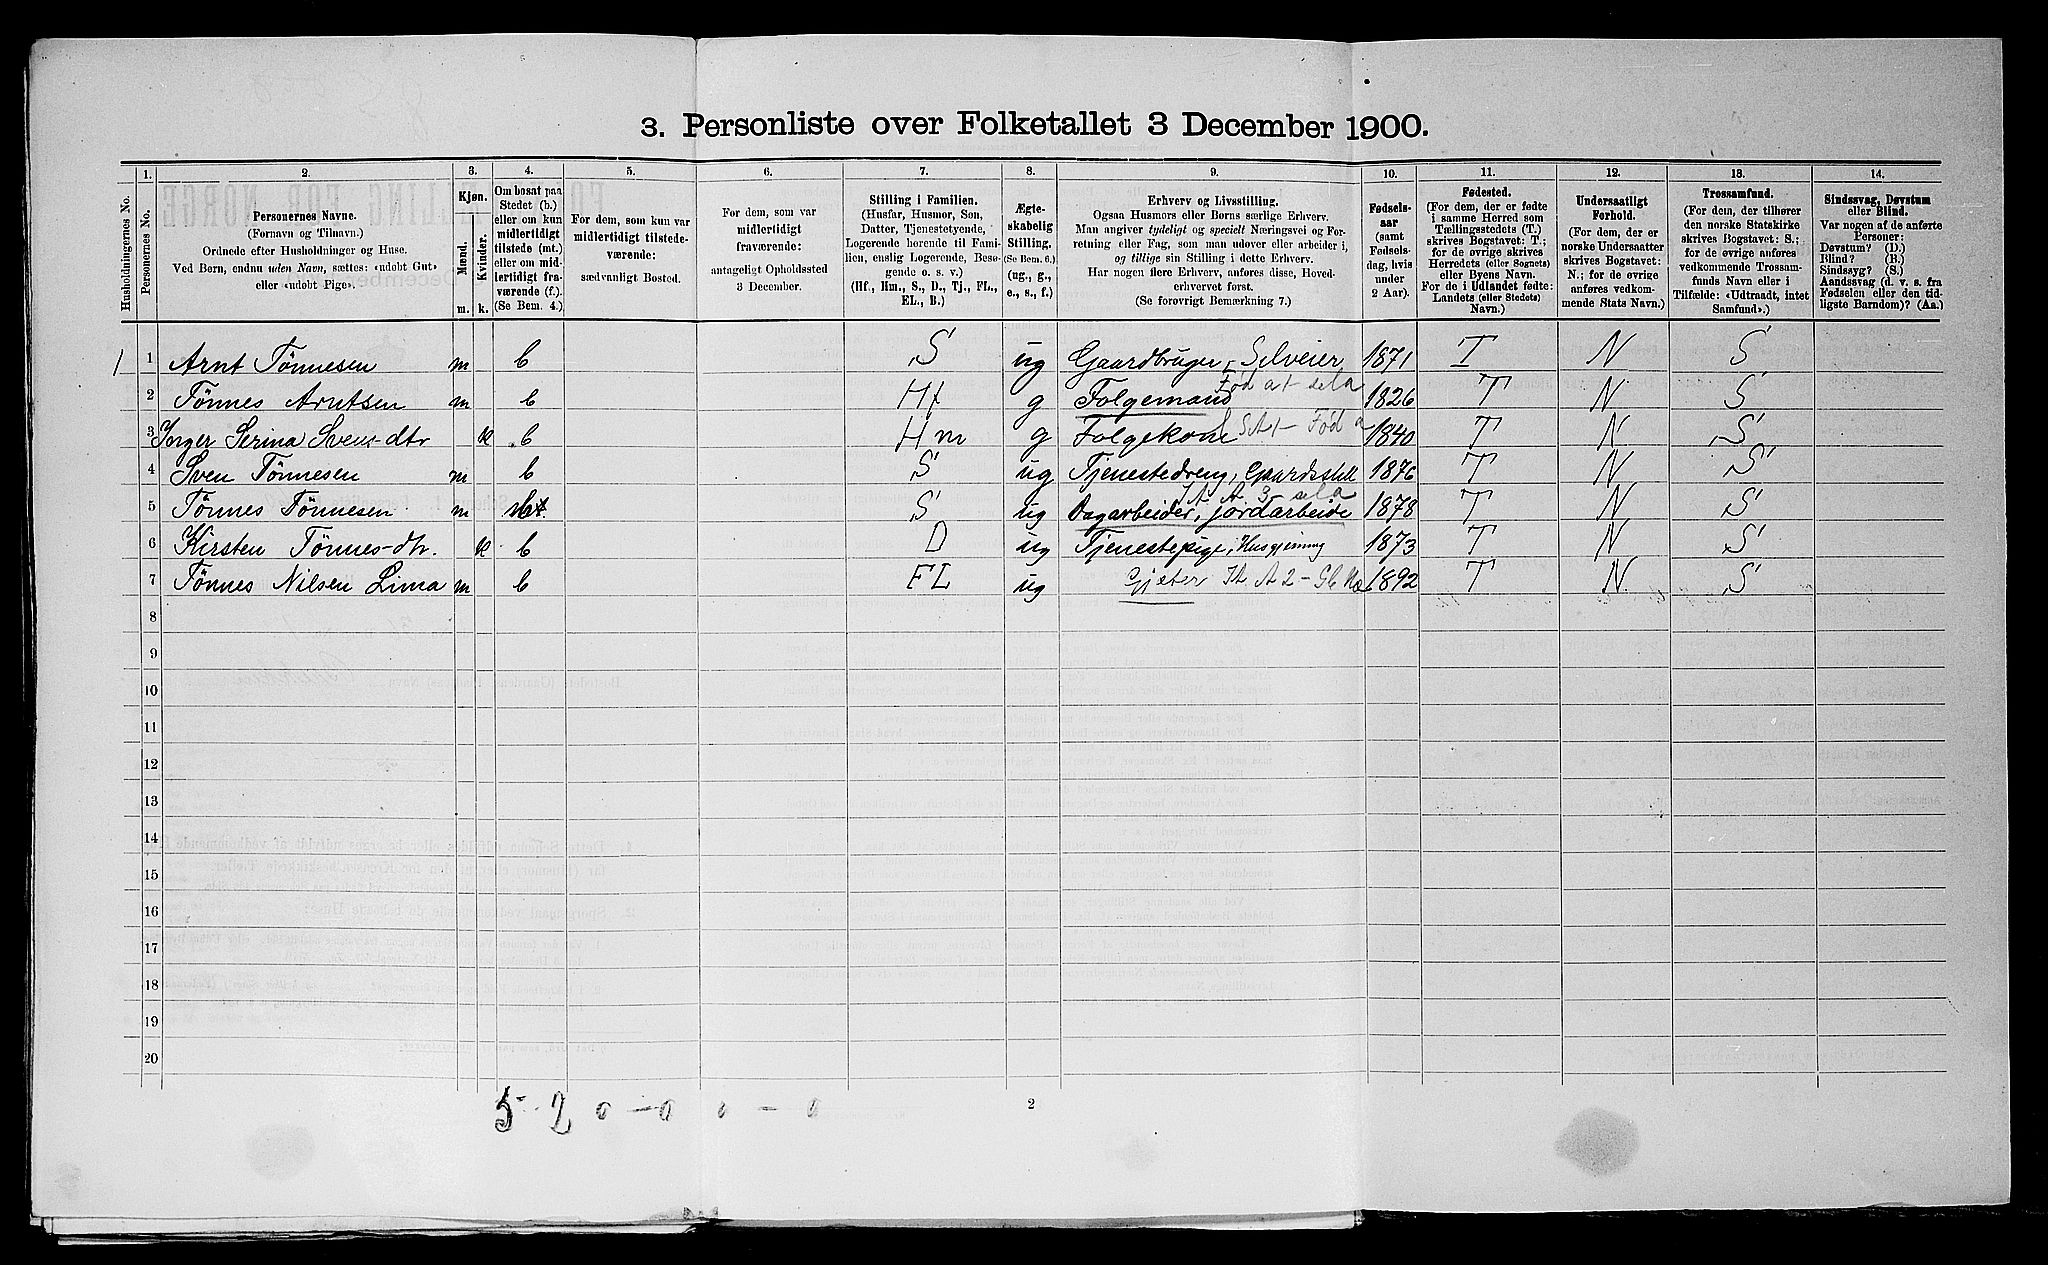 3. Personliste over Folketallet 3 December 1900.
Husholdningernes No.
1.
Personernes No.
2.
Personernes Navne.
(Fornavn og Tilnavn.)
Ordnede efter Husholdninger og Huse.
Ved Børn, endnu uden Navn, sættes: «udøbt Gut»
eller «udøbt Pige».
3.
Kjøn.
Mænd.
Kvinder.
m.
k.
4.
Om bosat paa
Stedet (b.)
eller om kun
midlertidigt
tilstede (mt.)
eller om mid-
lertidigt fra-
værende (f.)
(Se Bem. 4.)
5.
For dem, som kun var
midlertidigt tilstede-
værende:
sædvanligt Bosted.
6.
For dem, som var
midlertidigt
fraværende:
antageligt Opholdssted
3 December.
7.
Stilling i Familien.
(Husfar, Husmor, Søn,
Datter, Tjenestetyende,
Logerende hørende til Fami-
lien, enslig Logerende, Besø-
gende o. s. v.)
(Hf., Hm., S., D., Tj., FL.,
EL., B.)
8.
Ægte-
skabelig
Stilling.
(Se Bem. 6.)
(ug., g.,
e., s., f.)
9.
Erhverv og Livsstilling.
Ogsaa Husmors eller Børns særlige Erhverv.
Man angiver tydeligt og specielt Næringsvei og For-
retning eller Fag, som man udøver eller arbeider i,
og tillige sin Stilling i dette Erhverv.
Har nogen flere Erhverv, anføres disse, Hoved-
erhvervet først.
(Se forøvrigt Bemærkning 7.)
10.
Fødsels-
aar
(samt
Fødsels-
dag, hvis
under
2 Aar).
11.
Fødested.
(For dem, der er fødte
i samme Herred som
Tællingsstedets (T.)
skrives Bogstavet: T.;
for de øvrige skrives
Herredets (eller Sognets)
eller Byens Navn.
For de i Udlandet fødte:
Landets (eller Stedets)
Navn.)
12.
Undersaatligt
Forhold.
(For dem, der er
norske Undersaatter
skrives Bogstavet:
N.; for de øvrige
anføres vedkom-
mende Stats Navn.)
13.
Trossamfund.
(For dem, der tilhører
den norske Statskirke
skrives Bogstavet: S.;
for de øvrige anføres
vedkommende Trossam-
funds Navn eller i
Tilfælde: «Udtraadt, intet
Samfund».)
14.
Sindssvag, Døvstum
eller Blind.
Var nogen af de anførte
Personer:
Døvstum? (D.)
Blind? (B.)
Sindssyg? (S.)
Aandssvag (d. v. s. fra
Fødselen eller den tid-
ligste Barndom)? (Aa.)
1 1 Arnt Tønnesen m b S ug Gaardbruger, Selveier 1871 T N S
2 Tønnes Arntsen m b Hf g Folgemand 1826 T N S
3 Inger Serina Svens-dtr k b Hm g Folgekone 1840 T N S
4 Sven Tønnesen m b S ug Tjenestedreng, Gaardsstell 1876 T N S
5 Tønnes Tønnesen m S ug Dagarbeider, jordarbeide 1878 T N S
6 Kirsten Tønnes-dtr. k b D ug Tjenestepige, Husgjerning 1873 T N S
7 Tønnes Nilsen Lima m b FL ug Gjæter 1892 T N S
8
9
10
11
12
13
14
15
16
17
18
19
20
5-2 0-0 0-0
2